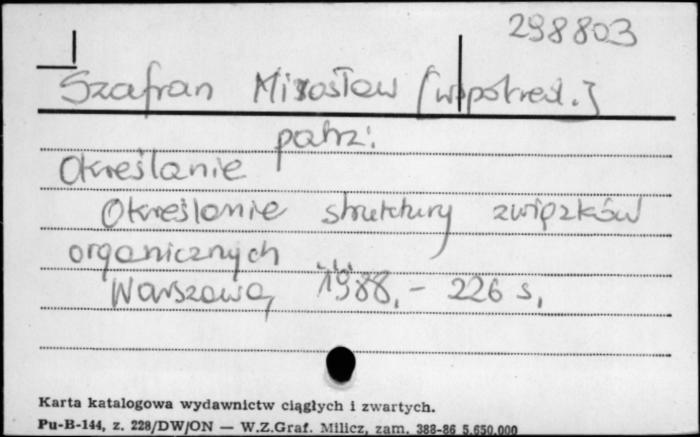 298803
Szafran Mirosław [współred.]
patrz:
Określanie
Określanie struktury związków
organicznych
Warszawa, 1988, – 226 s,
Karta katalogowa wydawnictw ciągłych i zwartych.
Pu-B-144, z. 228/DW/ON — W.Z.Graf. Milicz, zam. 388-86 5.650.000